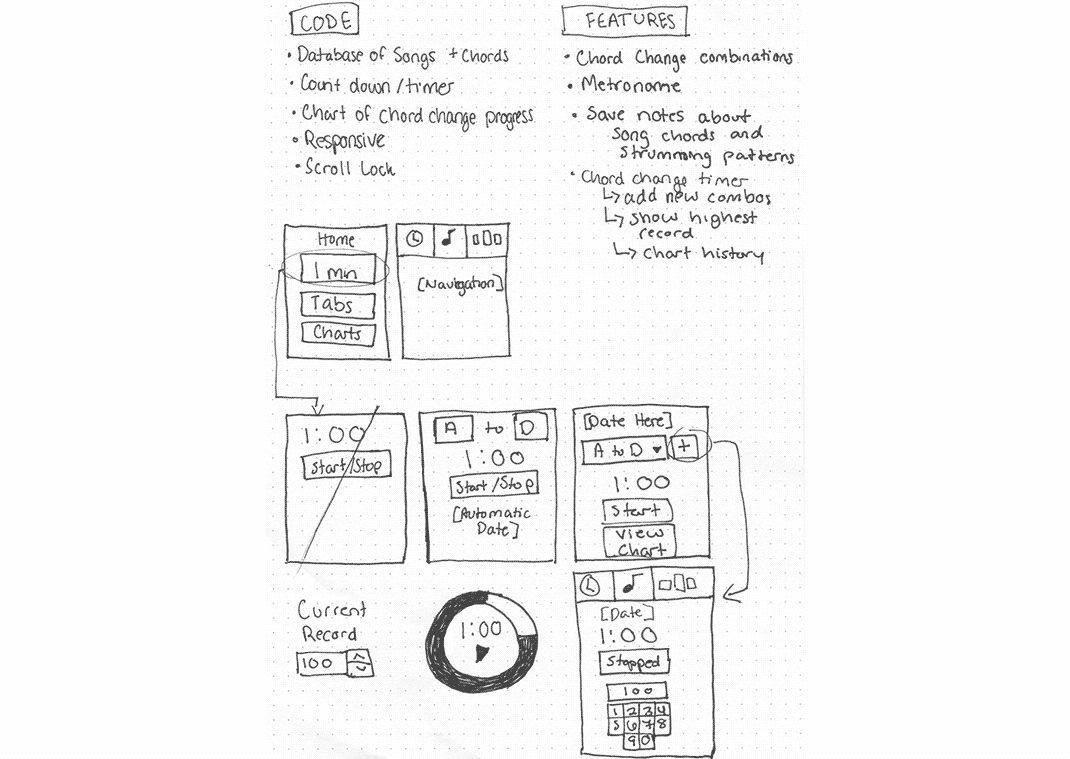 CODE
• Database of Songs + Chords
• Count down/timer
• Chart of chord change progress
• Responsive
• Scroll Lock
FEATURES
• Chord Change combinations
• Metronome
• Save notes about
song chords and
strumming patterns
• Chord change timer
↳ add new combos
↳ show highest
record
↳ chart history
Home
1 min
Tabs
Charts
[Navigation]
1:00
Start/Stop
A to D
1:00
Start/Stop
[Automatic
Date]
[Date Here]
A to D ▾ +
1:00
Start
View
Chart
Current
Record
100
1:00
[Date]
1:00
Stopped
100
1 2 3 4
5 6 7 8
9 0